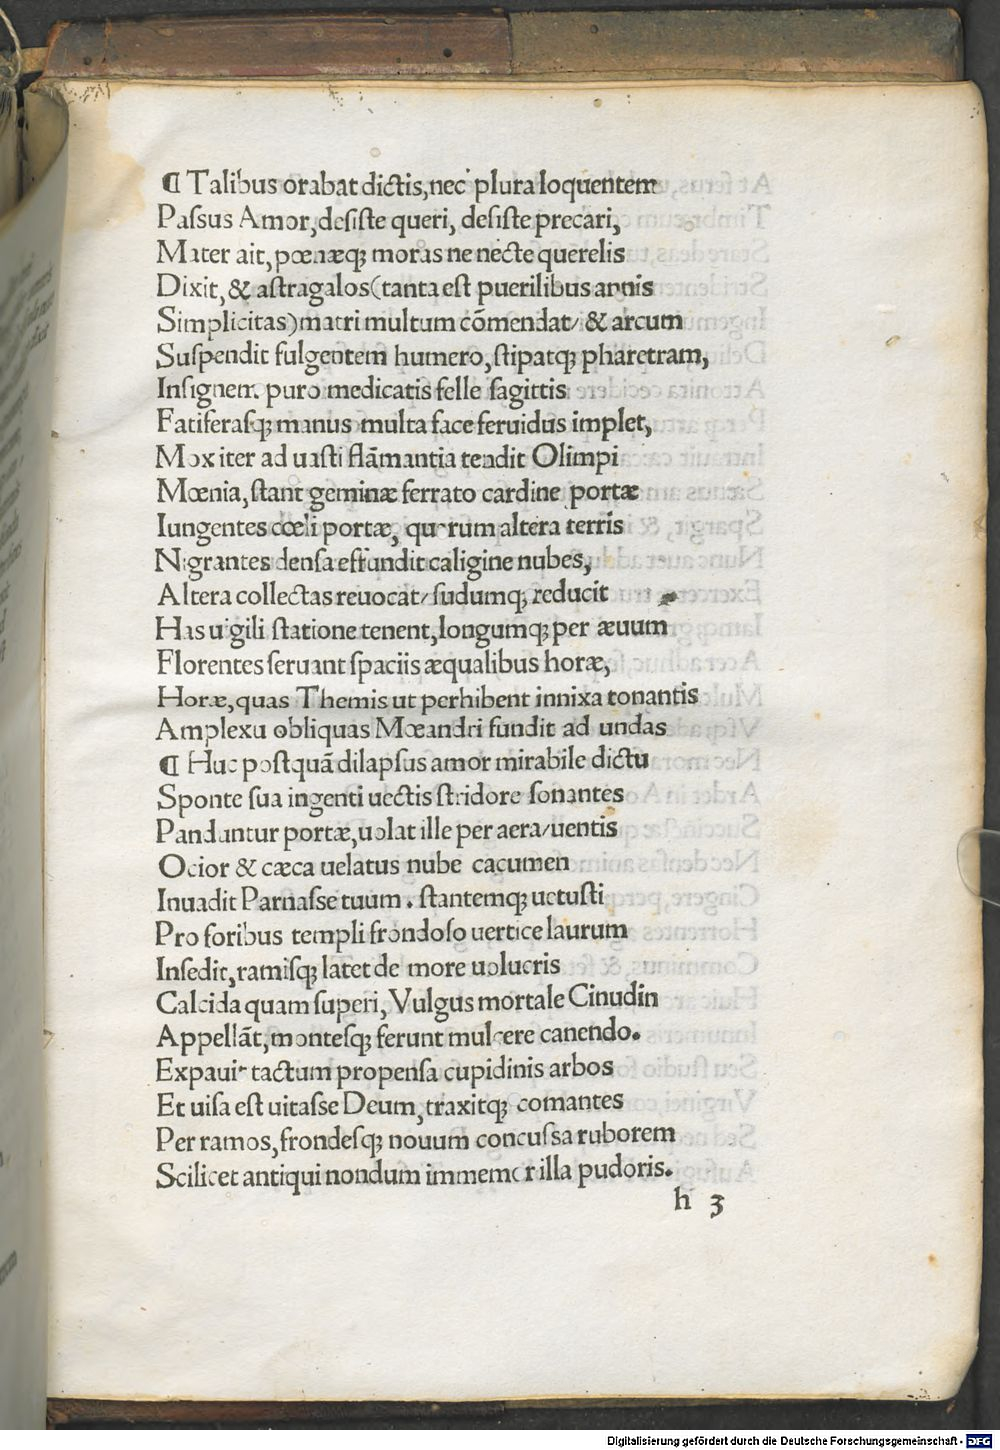 ¶ Talibus orabat dictis, nec plura loquentem
Paſsus Amor, deſiſte queri, deſiſte precari,
Mater ait, pœnæqꝫ moras ne necte querelis
Dixit, & aſtragalos (tanta eſt puerilibus annis
Simplicitas) matri multum cõmendat/ & arcum
Suſpendit fulgentem humero, ſtipatqꝫ pharetram,
Inſignem puro medicatis felle ſagittis
Fatiferaſqꝫ manus multa face feruidus implet,
Mox iter ad uaſti flãmantia tendit Olimpi
Mœnia, ſtant geminæ ferrato cardine portæ
Iungentes cœli portæ, quarum altera terris
Nigrantes denſa effundit caligine nubes,
Altera collectas reuocat/ ſudumqꝫ reducit
Has uigili ſtatione tenent, longumqꝫ per æuum
Florentes ſeruant ſpaciis æqualibus horæ,
Horæ, quas Themis ut perhibent innixa tonantis
Amplexu obliquas Mœandri fundit ad undas
¶ Huc poſtquã dilapſus amor mirabile dictu
Sponte ſua ingenti uectis ſtridore ſonantes
Panduntur portæ, uolat ille per aera/ uentis
Ocior & cæca uelatus nube cacumen
Inuadit Parnaſse tuum. ſtantemqꝫ uetuſti
Pro foribus templi frondoſo uertice laurum
Inſedit, ramiſqꝫ latet de more uolucris
Calcida quam ſuperi, Vulgus mortale Cinudin
Appellãt, monteſqꝫ ferunt mulcere canendo.
Expauit tactum propenſa cupidinis arbos
Et uiſa eſt uitaſse Deum, traxitqꝫ comantes
Per ramos, frondeſqꝫ nouum concuſsa ruborem
Scilicet antiqui nondum immemor illa pudoris.
h 3
Digitalisierung gefördert durch die Deutsche Forschungsgemeinschaft - DFG